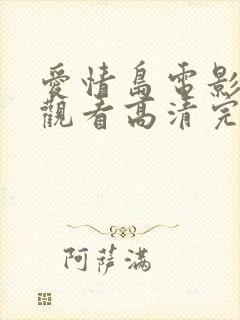 愛情島電影
觀看高清完
阿薩滿